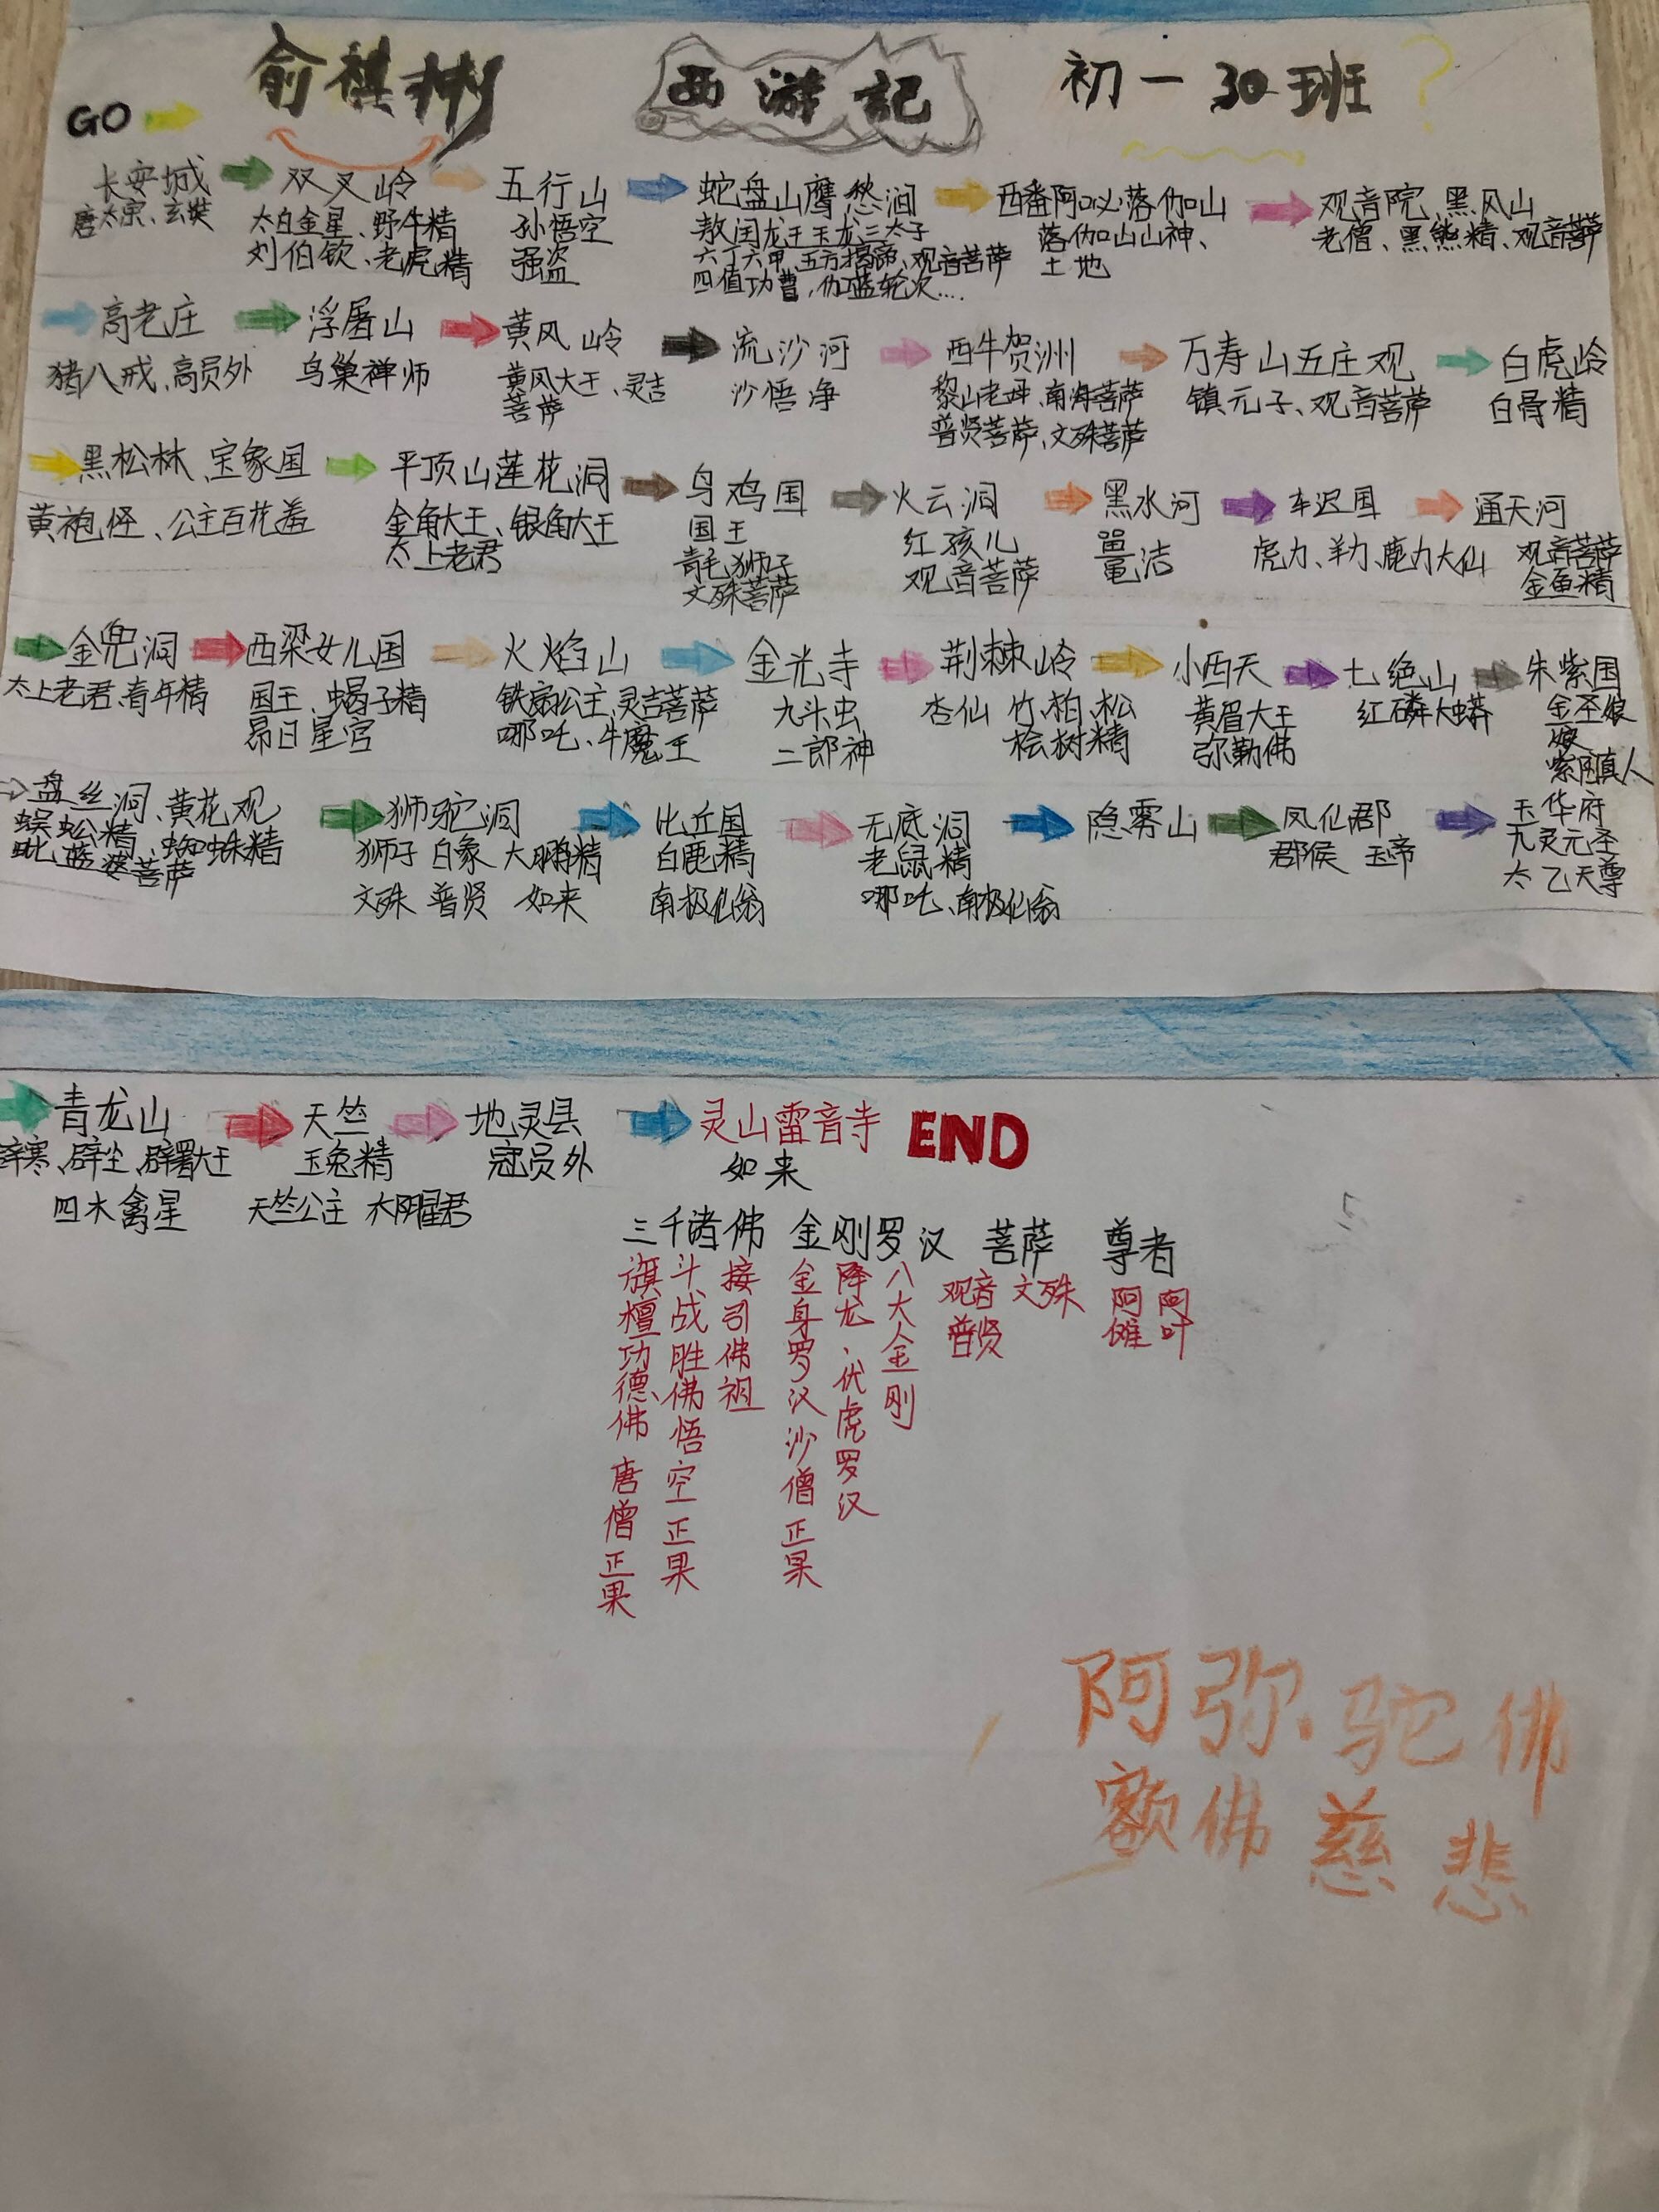 俞祺彬 西游記 初一30班 ?
GO
长安城 双叉岭 五行山 蛇盘山鹰愁涧 西番阿哑落伽山 观音院、黑风山
唐太宗、玄奘 太白金星、野牛精 孙悟空 敖闰龙王玉龙三太子 落伽山山神、 老僧、黑熊精、观音菩萨
刘伯钦、老虎精 强盗 六丁六甲、五方揭谛、观音菩萨 土地
四值功曹,伽蓝轮次....
高老庄 浮屠山 黄风岭 流沙河 西牛贺洲 万寿山五庄观 白虎岭
猪八戒、高员外 乌巢禅师 黄风大王、灵吉 沙悟净 黎山老母、南海菩萨 镇元子、观音菩萨 白骨精
菩萨 普贤菩萨、文殊菩萨
黑松林、宝象国 平顶山莲花洞 乌鸡国 火云洞 黑水河 车迟国 通天河
黄袍怪、公主百花羞 金角大王、银角大王 国王 红孩儿 鼍洁 虎力、羊力、鹿力大仙 观音菩萨
太上老君 青毛狮子 观音菩萨 金鱼精
文殊菩萨
金兜洞 西梁女儿国 火焰山 金光寺 荆棘岭 小西天 七绝山 朱紫国
太上老君、青牛精 国王、蝎子精 铁扇公主、灵吉菩萨 九头虫 杏仙 竹、柏、松 黄眉大王 红磷大蟒 金圣娘
昴日星宫 哪吒、牛魔王 二郎神 桧树精 弥勒佛 娘
紫阳真人
盘丝洞、黄花观 狮驼洞 比丘国 无底洞 隐雾山 凤仙郡 玉华府
蜈蚣精、蜘蛛精 狮子 白象 大鹏精 白鹿精 老鼠精 郡侯 玉帝 九灵元圣
毗蓝婆菩萨 文殊 普贤 如来 南极仙翁 哪吒、南极仙翁 太乙天尊
青龙山 天竺 地灵县 灵山雷音寺 END
辟寒、辟尘、辟署大王 玉兔精 寇员外 如来
四木禽星 天竺公主 太阴星君
三千诸佛 金刚罗汉 菩萨 尊者
旃檀功德佛 唐僧正果
斗战胜佛悟空正果
接引佛祖
金身罗汉沙僧正果
降龙、伏虎罗汉
八大金刚
观音 文殊
普贤
阿傩
阿叶
阿弥驼佛
额佛慈悲